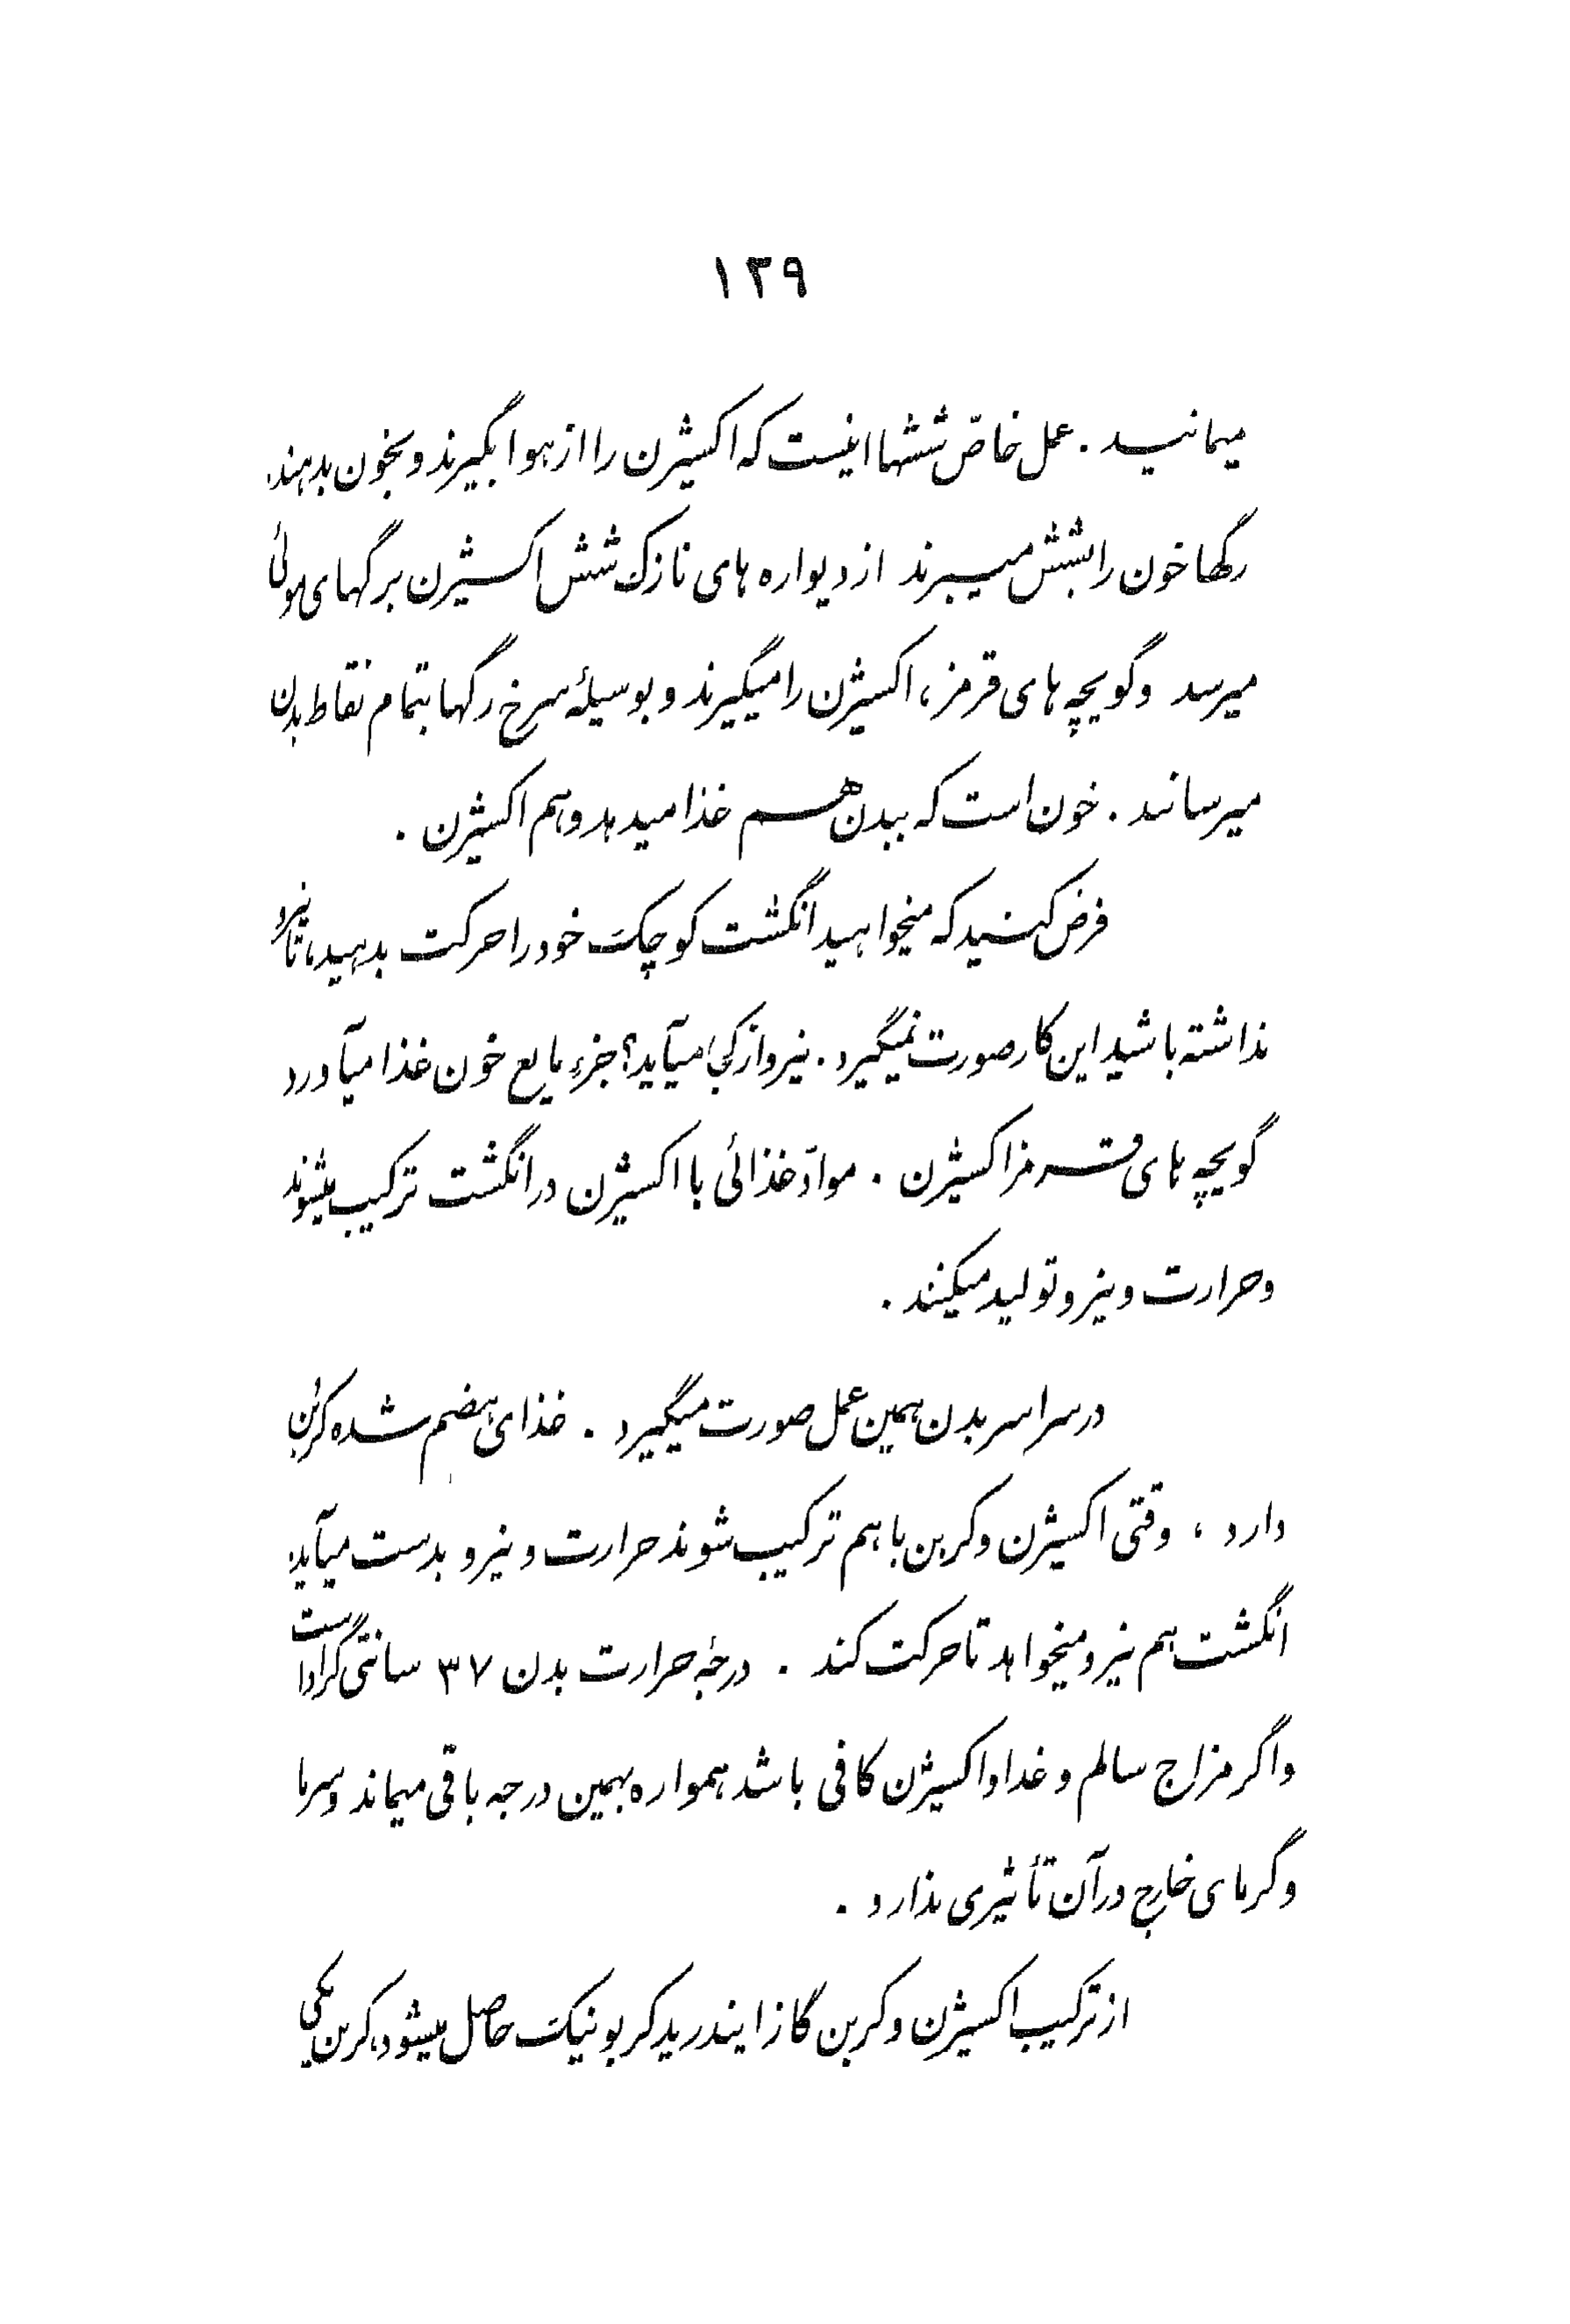 ۱۳۹
میمانید . عمل خاصّ ششها اینست که اکسیژن را از هوا بگیرند و بخون بدهند .
رگها خون را بشش میبرند از دیواره های نازک شش اکسیژن برگهای موئی
میرسد و گویچه های قرمز ، اکسیژن را میگیرند و بوسیلهٔ سرخ رگها بتمام نقاط بدن
میرسانند . خون است که ببدن هم غذا میدهد و هم اکسیژن .
فرض کنید که میخواهید انگشت کوچک خود را حرکت بدهید ، تا نیرو
نداشته باشید این کار صورت نمیگیرد . نیرو از کجا میآید ؟ جزء مایع خون غذا میآورد
گویچه های قرمز اکسیژن . موادّ غذائی با اکسیژن در انگشت ترکیب میشوند
و حرارت و نیرو تولید میکنند .
در سراسر بدن همین عمل صورت میگیرد . غذای هضم شده کربن
دارد ، وقتی اکسیژن و کربن با هم ترکیب شوند حرارت و نیرو بدست میآید
انگشت هم نیرو میخواهد تا حرکت کند . درجهٔ حرارت بدن ۳۷ سانتی گراد است
و اگر مزاج سالم و غذا و اکسیژن کافی باشد همواره بهمین درجه باقی میماند و سرما
و گرمای خارج در آن تأثیری ندارد .
از ترکیب اکسیژن و کربن گاز ایندرید کربونیک حاصل میشود ، کربن یکی